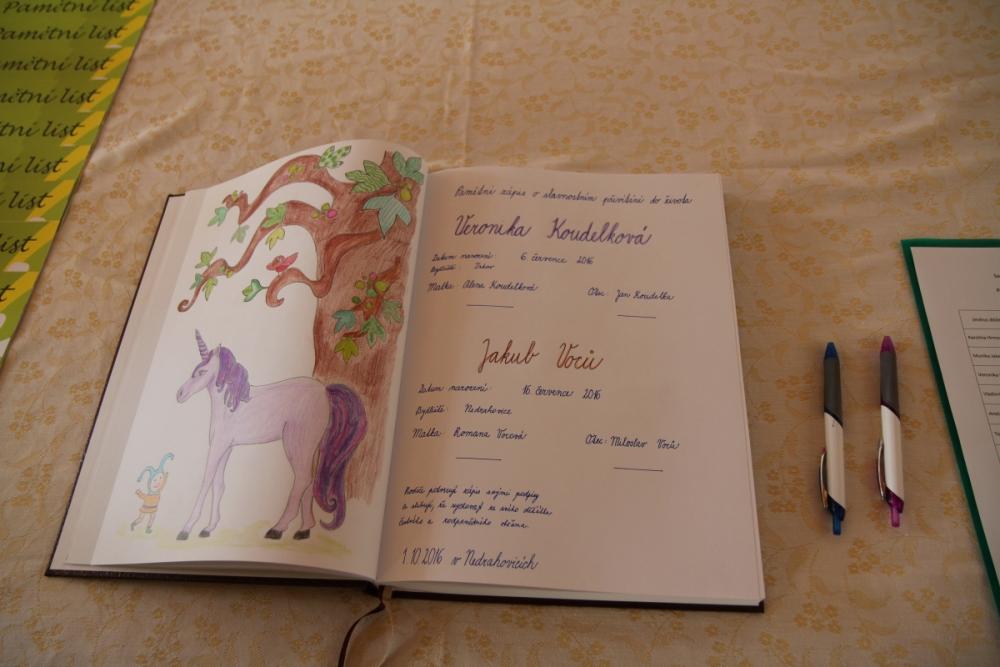 Pamětní list
Pamětní list
Pamětní list
Pamětní list
Pamětní list
Pamětní list
ní list
list
Pamětní zápis o slavnostním přivítání do života
Veronika Koudelková
Datum narození: 6. července 2016
Bydliště: Jakov
Matka: Alena Koudelková Otec: Jan Koudelka
Jakub Voců
Datum narození: 16. července 2016
Bydliště: Nedrahovice
Matka: Romana Vocová Otec: Miloslav Voců
Rodiče potvrzují zápis svými podpisy
a slibují, že vychovají ze svého dítěte
čestného a zodpovědného občana.
1.10.2016 v Nedrahovicích